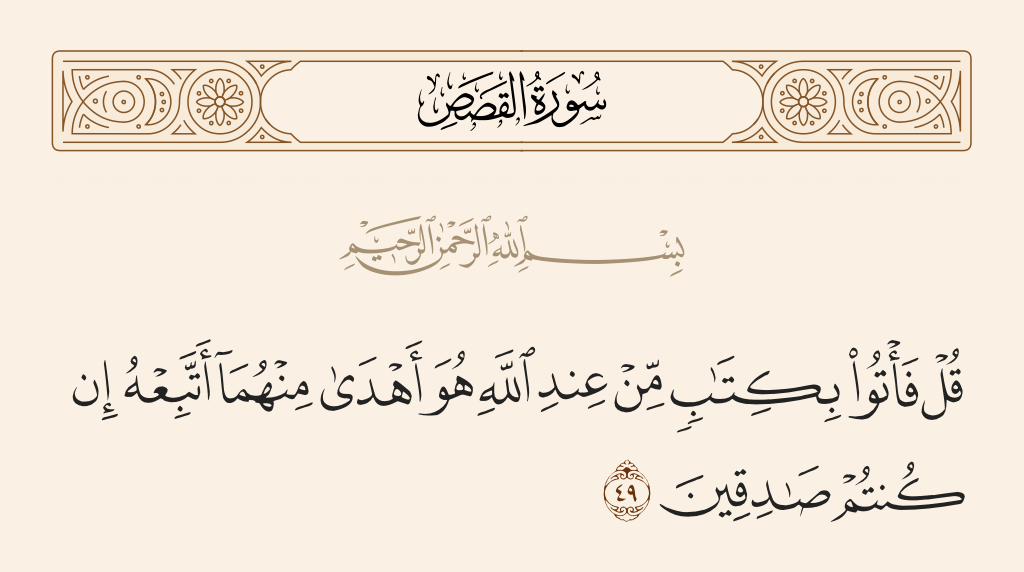 سُورَةُ القَصَصِ
بِسْمِ ٱللَّهِ ٱلرَّحْمَٰنِ ٱلرَّحِيمِ
قُلْ فَأْتُوا۟ بِكِتَٰبٍ مِّنْ عِندِ ٱللَّهِ هُوَ أَهْدَىٰ مِنْهُمَآ أَتَّبِعْهُ إِن
كُنتُمْ صَٰدِقِينَ ٤٩